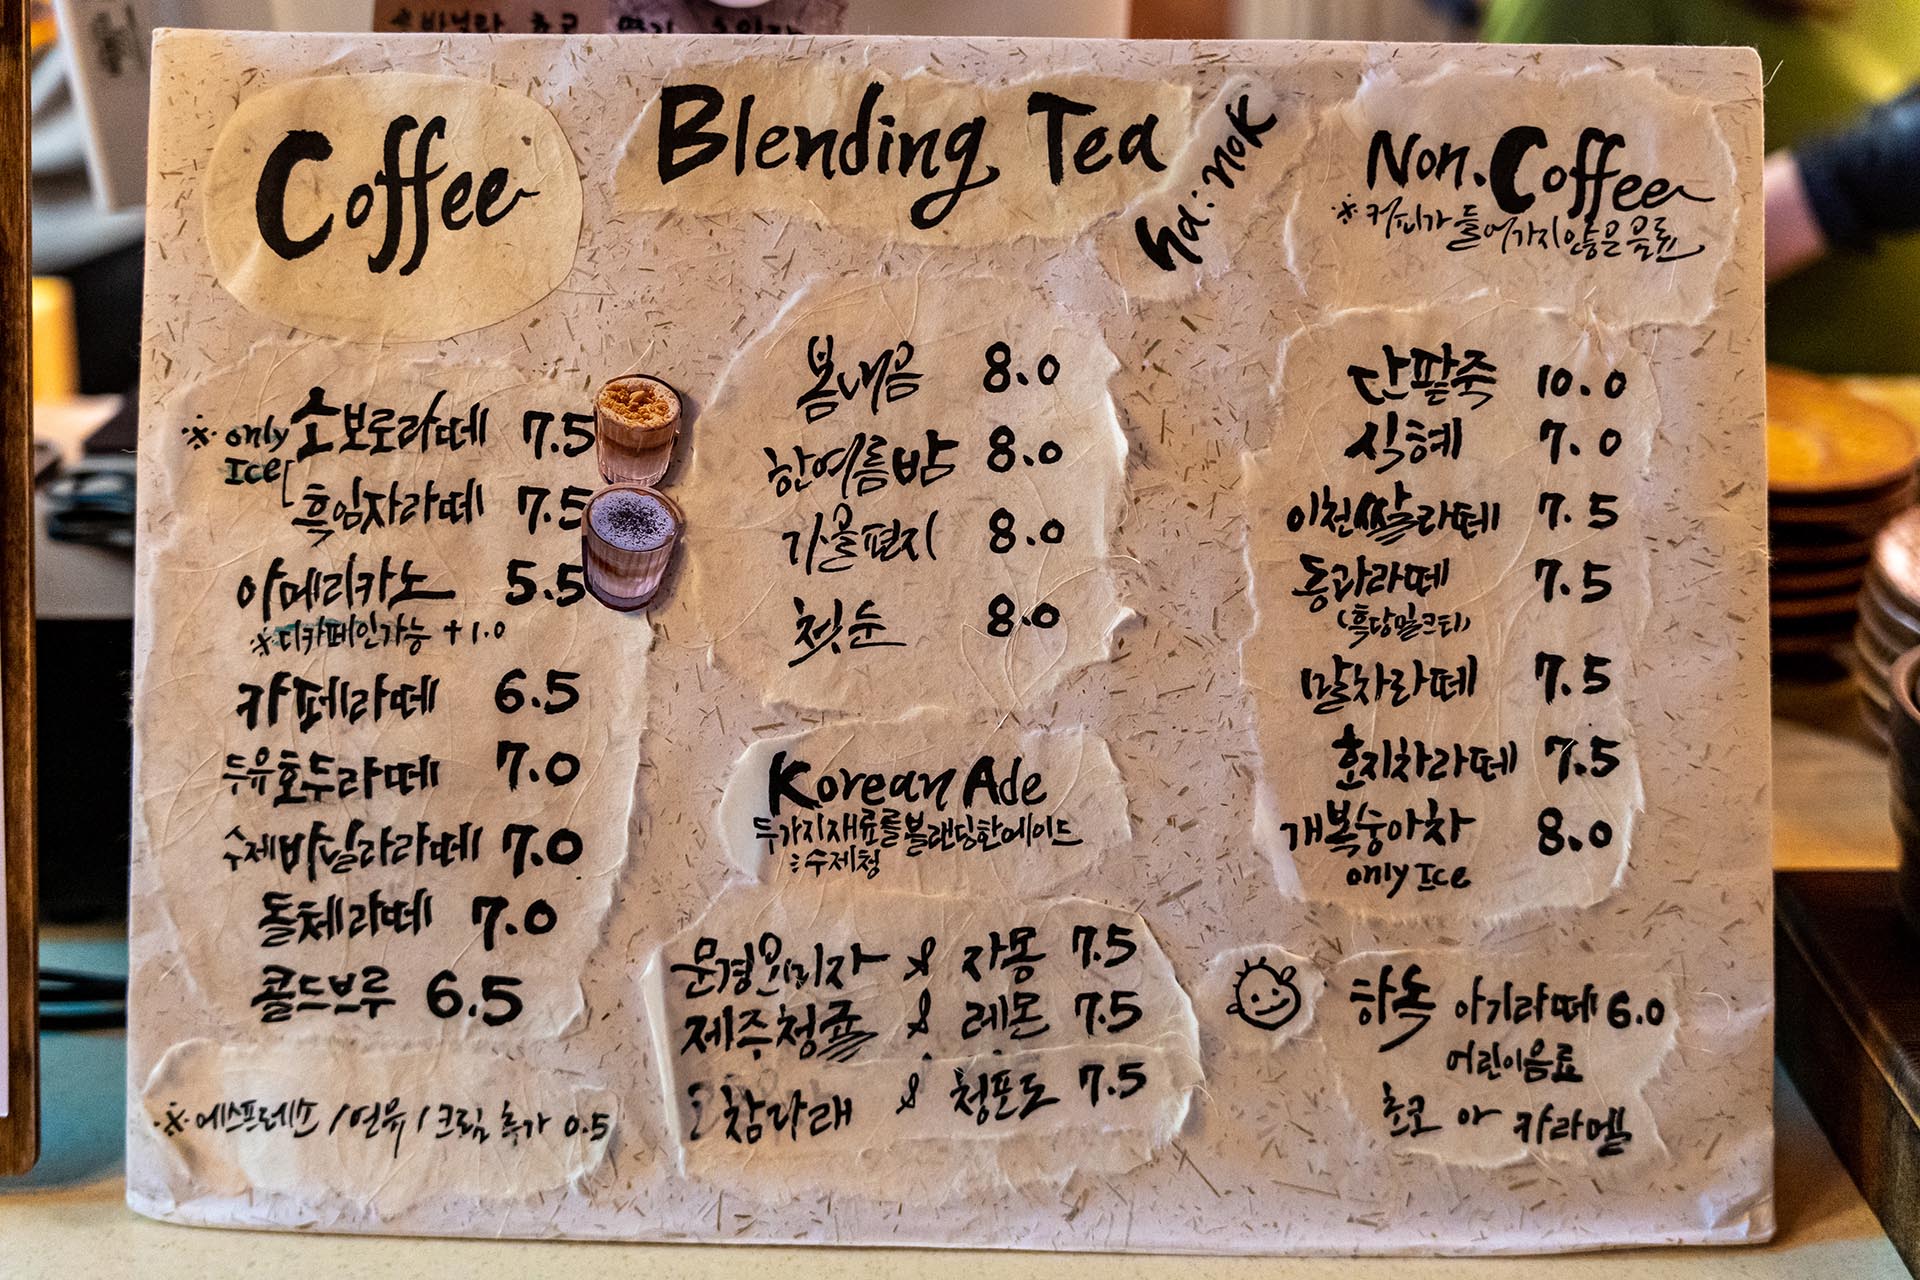 Coffee
※ only Ice
소보로라떼 7.5
흑임자라떼 7.5
아메리카노 5.5
※디카페인가능 +1.0
카페라떼 6.5
두유호두라떼 7.0
수제바닐라라떼 7.0
돌체라떼 7.0
콜드브루 6.5
※ 에스프레소 / 연유 / 크림 추가 0.5
Blending Tea
ha:nok
봄내곰 8.0
한여름밤 8.0
가을편지 8.0
첫눈 8.0
Korean Ade
두가지재료를블랜딩한에이드
수제청
문경오미자 & 자몽 7.5
제주청귤 & 레몬 7.5
참다래 & 청포도 7.5
Non.Coffee
※커피가 들어가지않은음료
단팥죽 10.0
식혜 7.0
이천쌀라떼 7.5
동과라떼 7.5
(흑당밀크티)
말차라떼 7.5
호지차라떼 7.5
개복숭아차 8.0
only Ice
하녹 아기라떼 6.0
어린이음료
초코 아 카라멜